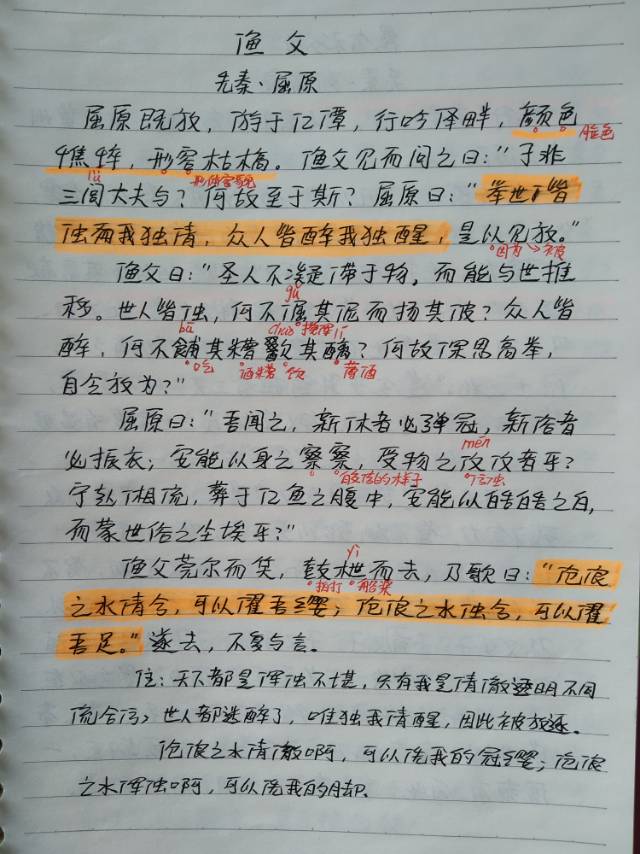 渔父
先秦·屈原
屈原既放，游于江潭，行吟泽畔，颜色
脸色
憔悴，形容枯槁。渔父见而问之曰：“子非
lǘ 形体容貌
三闾大夫与？何故至于斯？屈原曰：“举世皆
浊而我独清，众人皆醉我独醒，是以见放。”
因为 被
渔父曰：“圣人不凝滞于物，而能与世推
gǔ
移。世人皆浊，何不淈其泥而扬其波？众人皆
bū chuò 搅浑 lí
醉，何不餔其糟歠其醨？何故深思高举，
吃 酒糟 饮 薄酒
自令放为？”
屈原曰：“吾闻之，新沐者必弹冠，新浴者
mén
必振衣；安能以身之察察，受物之汶汶者乎？
皎洁的样子 污浊
宁赴湘流，葬于江鱼之腹中，安能以皓皓之白，
而蒙世俗之尘埃乎？”
yì
渔父莞尔而笑，鼓枻而去，乃歌曰：“沧浪
拍打 船桨
之水清兮，可以濯吾缨；沧浪之水浊兮，可以濯
吾足。”遂去，不复与言。
注：天下都是浑浊不堪，只有我是清澈透明不同
流合污，世人都迷醉了，唯独我清醒，因此被放逐。
沧浪之水清澈啊，可以洗我的冠缨；沧浪
之水浑浊啊，可以洗我的脚。